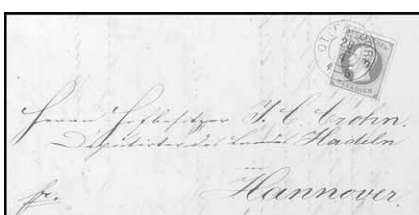 HANNOVER
Herrn Hofbesitzer J. C. Crohn.
Deputirter des Landes Hadeln
in
Hannover.
fr.